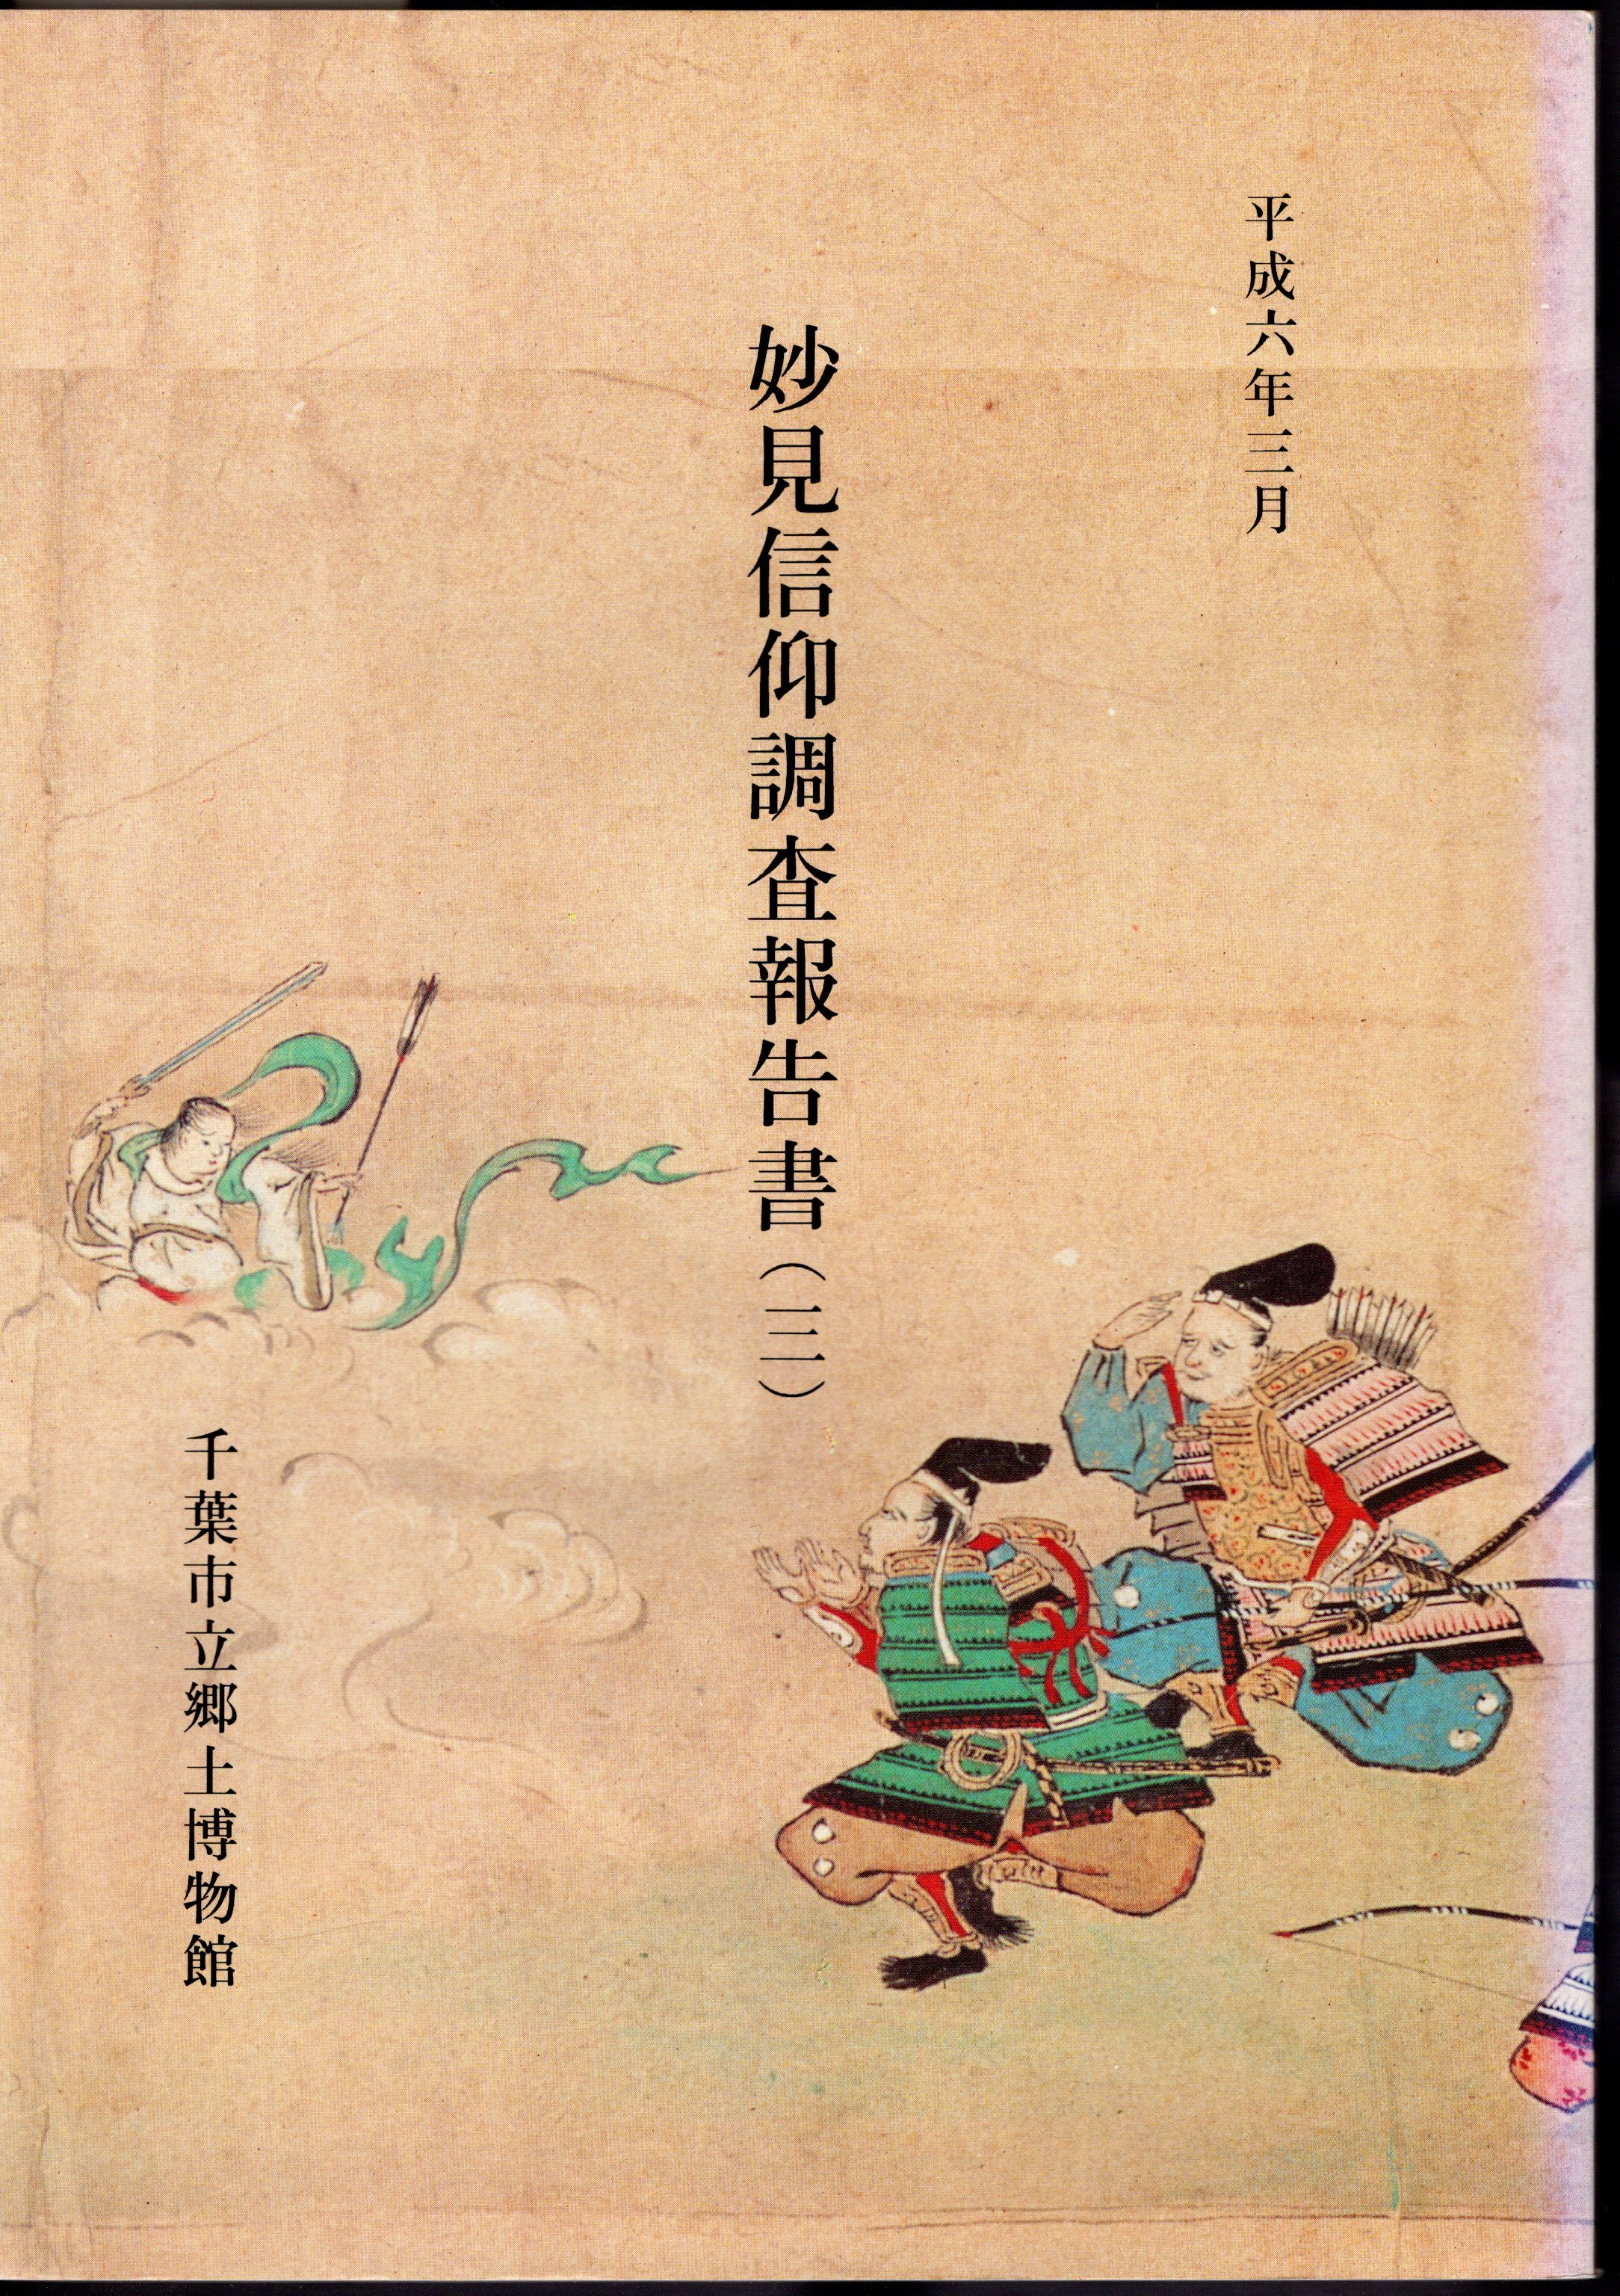 平成六年三月
妙見信仰調査報告書（三）
千葉市立郷土博物館